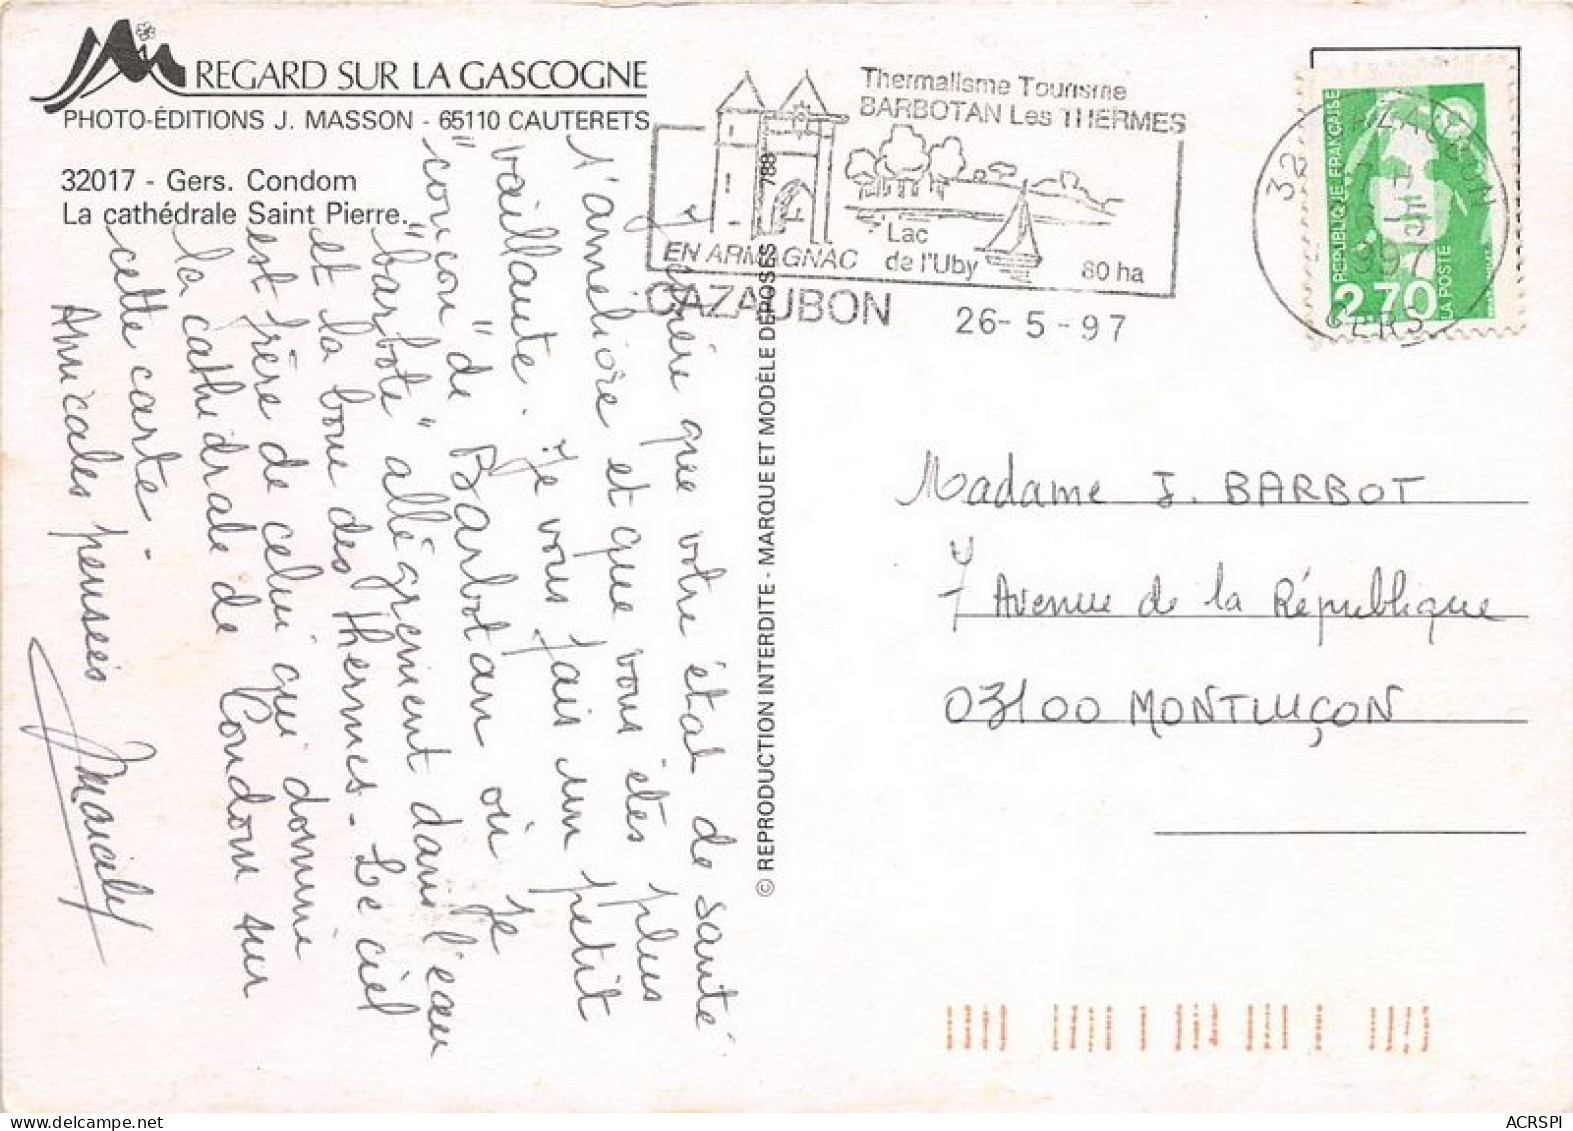 REGARD SUR LA GASCOGNE
PHOTO-ÉDITIONS J. MASSON - 65110 CAUTERETS
32017 - Gers. Condom
La cathédrale Saint Pierre.
que votre état de santé
s'améliore et que vous êtes plus
vaillante. Je vous fais un petit
"coucou" de Barbotan où je
"barbote" allégrement dans l'eau
et la boue des thermes. Le ciel
est frère de celui qui domine
la cathédrale de Condom sur
cette carte.
Amicales pensées
Marcel
Thermalisme Tourisme
BARBOTAN Les THERMES
EN ARMAGNAC
Lac
de l'Uby
80 ha
CAZAUBON
26-5-97
32 CAZAUBON
GERS
REPUBLIQUE FRANÇAISE
2,70
LA POSTE
© REPRODUCTION INTERDITE - MARQUE ET MODÈLE DEPOSÉS 788
Madame J. BARBOT
7 Avenue de la République
03100 MONTLUÇON
ACRSPI